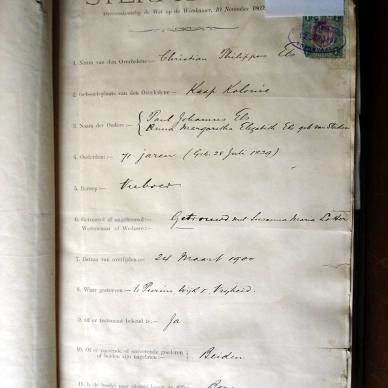 Overeenkomstig de Wet op de Weeskamer,
1. Naam van den Overledene:- Christian Philippus Els
2. Geboorteplaats van den Overledene:- Kaap Kolonie
3. Namen der Ouders:- Paul Johannes Els
Anna Margaretha Elizabeth Els geb van
4. Ouderdom:- 71 jaren (Geb. 28 Juli 1829)
5. Beroep:- Veeboer
6. Getrouwd of ongetrouwd:- Getrouwd met Susanna Maria
Weduwnaar of Weduwe:-
7. Datum van overlijden:- 24 Maart 1900
8. Waar gestorven:- Wijk 2 Vrijheid.
9. Of er testament bekend is:- Ja
10. Of er roerende of onroerende goederen
of beiden zijn nagelaten:- Beiden
11. Is de boedel